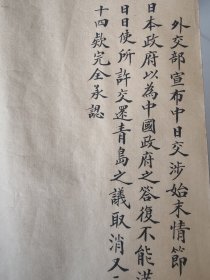 外交部宣布中日交涉始末情節
日本政府以為中國政府之答復不能滿
日日使所許交還青島之議取消又
十四欵完全承認